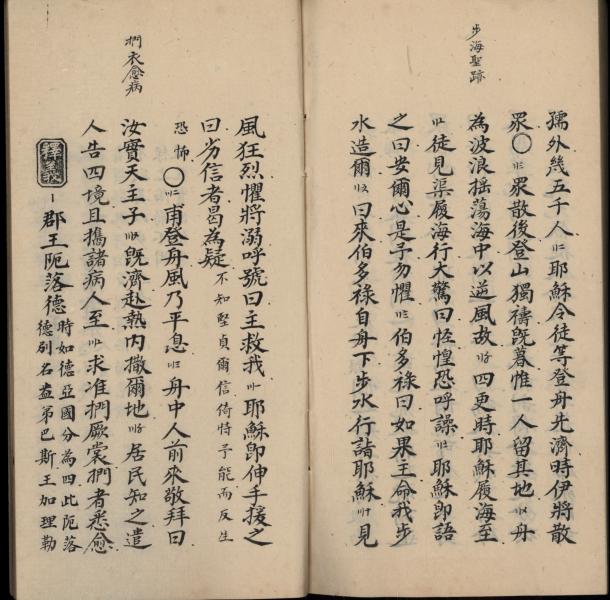 步海聖跡
孺外幾五千人耶穌令徒等登舟先濟時伊將散
眾〇眾散後登山獨禱旣暮惟一人留其地舟
為波浪搖蕩海中以逆風故四更時耶穌履海至
徒見渠履海行大驚曰恇惶恐呼譟耶穌卽語
之曰安爾心是予勿懼伯多祿曰如果主命我步
水造爾曰來伯多祿自舟下步水行詣耶穌見
捫衣愈病
風狂烈懼將溺呼號曰主救我耶穌卽伸手援之
曰劣信者曷為疑不知堅貞爾信倚恃予能而反生
恐怖〇甫登舟風乃平息舟中人前來敬拜曰
汝實天主子旣濟赴熱内撒爾地居民知之遣
人告四境且攜諸病人至求准捫厥裳捫者悉愈
釋義
郡王阨落德
時如德亞國分為四此阨落
德別名盎弟巴斯王加理勒